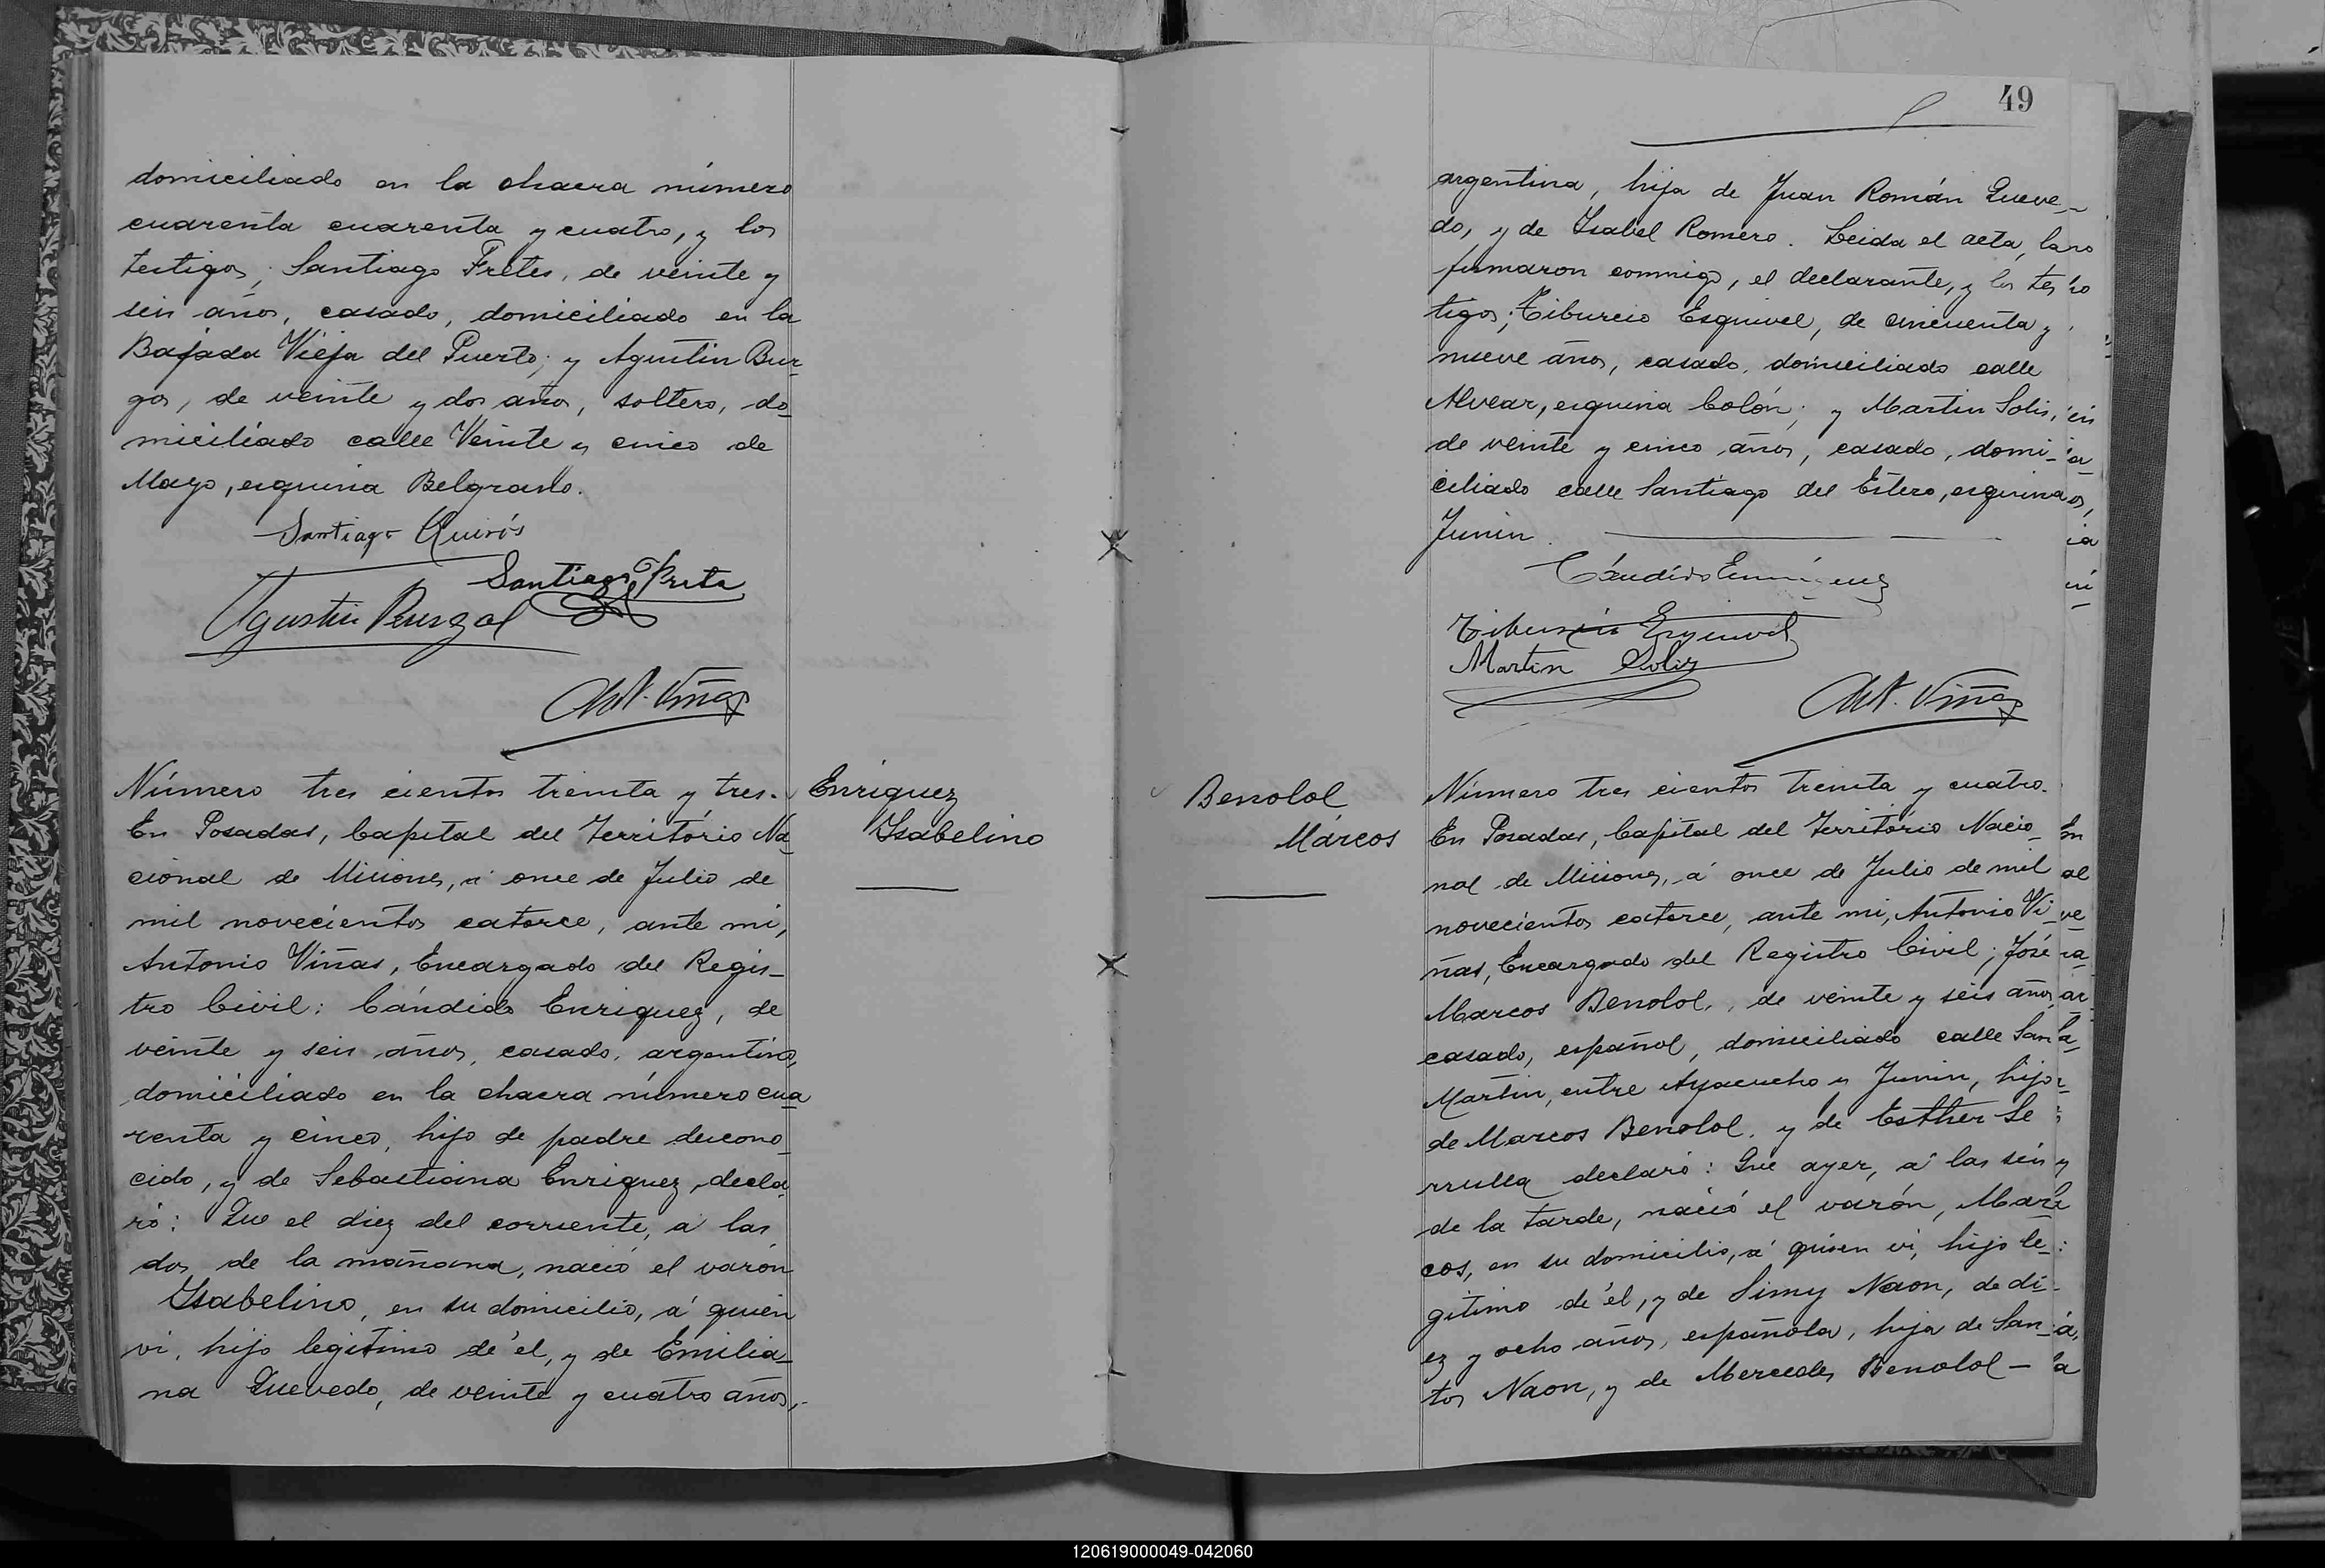 domiciliado en la chacra número
cuarenta cuarenta y cuatro, y los
testigos, Santiago Fretes, de veinte y
seis años, casado, domiciliado en la
Bajada Vieja del Puerto; y Agustin Bur-
gos, de veinte y dos años, soltero, do-
miciliado calle Veinte y cinco de
Mayo, esquina Belgrano.
Santiago Quirós
Santiago Frete
Agustin Burgos
Ant. Viñas
Número tres cientos treinta y tres.
En Posadas, Capital del Territorio Na-
cional de Misiones, á once de Julio de
mil novecientos catorce, ante mi,
Antonio Viñas, Encargado del Regis-
tro Civil: Cándido Enriquez, de
veinte y seis años, casado, argentino,
domiciliado en la chacra número cua
renta y cinco, hijo de padre descono-
cido, y de Sebastiana Enriquez, decla-
ró: Que el diez del corriente, á las
dos de la mañana, nació el varón
Ysabelino, en su domicilio, á quién
vi, hijo legitimo de él, y de Emilia-
na Quevedo, de veinte y cuatro años,
Enriquez
Ysabelino
49
argentina, hija de Juan Román Queve-
do, y de Ysabel Romero. Leida el acta, la
firmaron conmigo, el declarante, y los tes
tigos; Tiburcio Esquivel, de cincuenta y
nueve años, casado, domiciliado calle
Alvear, esquina Colón; y Martin Solis,
de veinte y cinco años, casado, domi-
ciliado calle Santiago del Estero, esquina
Junin.
Cándido Enriquez
Tiburcio Esquivel
Martin Soliz
Ant. Viñas
Benolol
Márcos
Número tres cientos treinta y cuatro.
En Posadas, Capital del Territorio Nacio-
nal de Misiones, á once de Julio de mil
novecientos catorce, ante mi, Antonio Vi-
ñas, Encargado del Registro Civil; José
Marcos Benolol, de veinte y seis años,
casado, español, domiciliado calle San
Martin, entre Ayacucho y Junin, hijo
de Marcos Benolol, y de Esther Se
rrulla declaró: Que ayer, á las seis
de la tarde, nació el varón, Mar-
cos, en su domicilio, á quien vi, hijo le-
gitimo de él, y de Simy Naon, de di-
ez y ocho años, española, hija de San-
tos Naon, y de Mercedes Benolol —